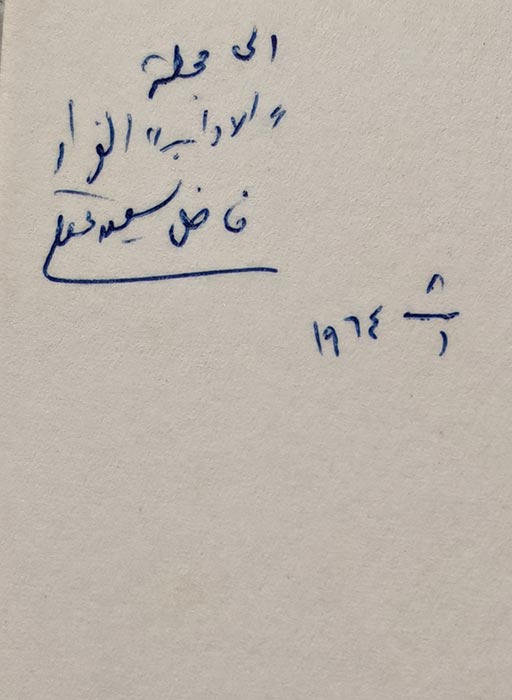 الى مجلة
"الاداب" الغراء
فاضل سعيد
٨
١
١٩٦٤